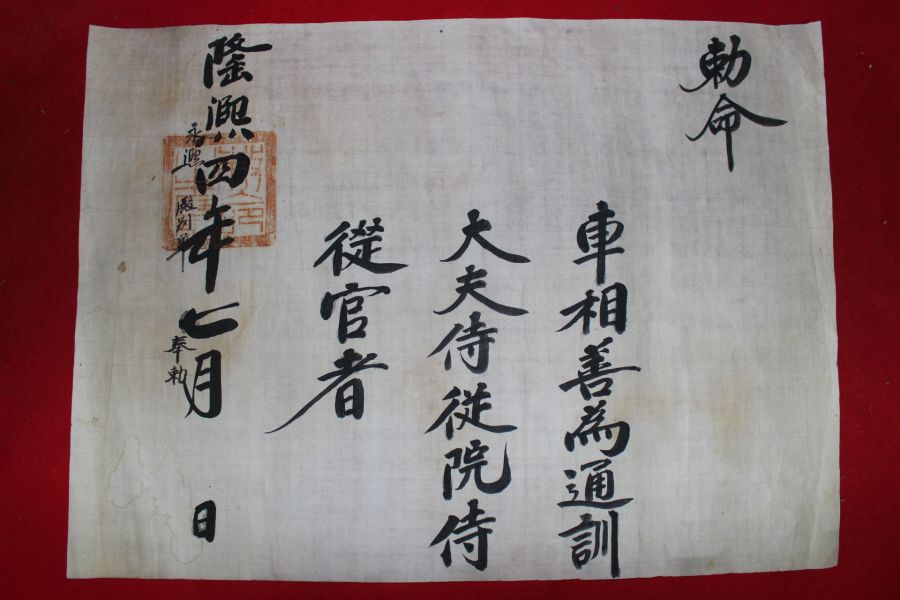 勅命
車相善為通訓
大夫侍從院侍
從官者
隆熙四年七月 日
永熙殿別單 奉勅